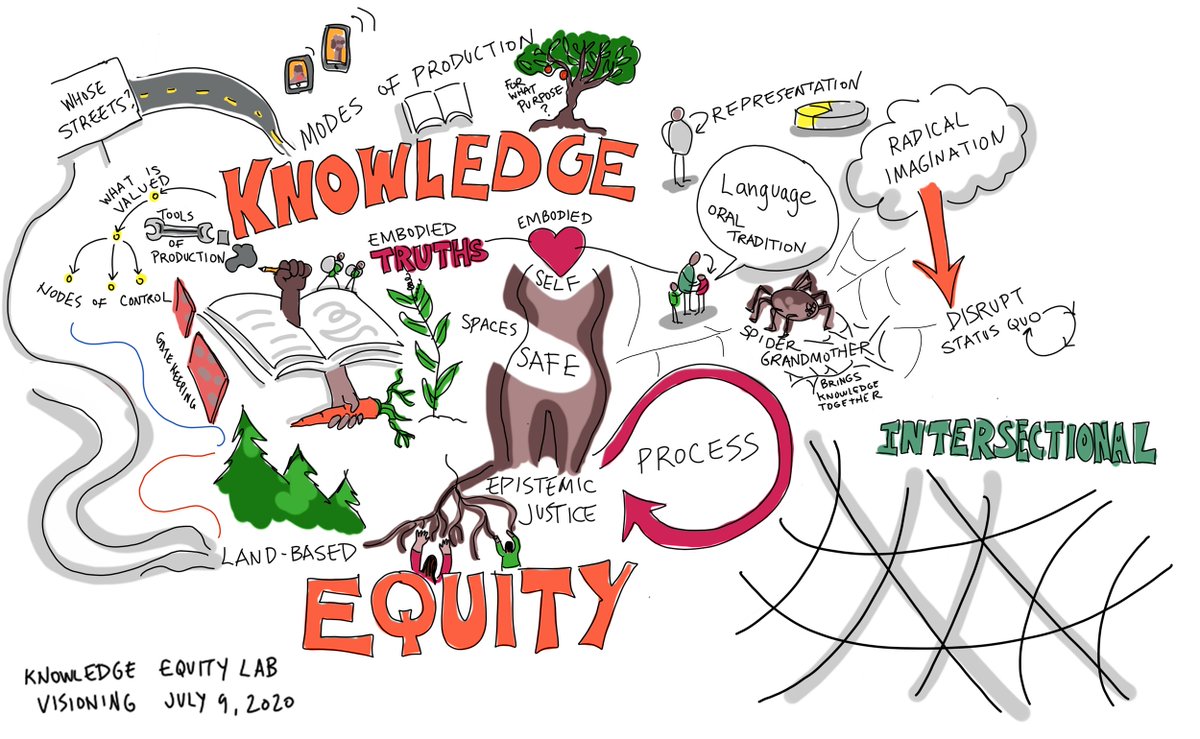 WHOSE
STREETS?
MODES OF PRODUCTION
FOR
WHAT
PURPOSE
?
KNOWLEDGE
REPRESENTATION
RADICAL
IMAGINATION
WHAT IS
VALUED
TOOLS
OF
PRODUCTION
NODES OF CONTROL
GATEKEEPING
EMBODIED
TRUTHS
EMBODIED
SELF
SPACES
SAFE
Language
ORAL
TRADITION
SPIDER
GRANDMOTHER
BRINGS
KNOWLEDGE
TOGETHER
DISRUPT
STATUS QUO
PROCESS
INTERSECTIONAL
EPISTEMIC
JUSTICE
LAND-BASED
EQUITY
KNOWLEDGE EQUITY LAB
VISIONING JULY 9, 2020